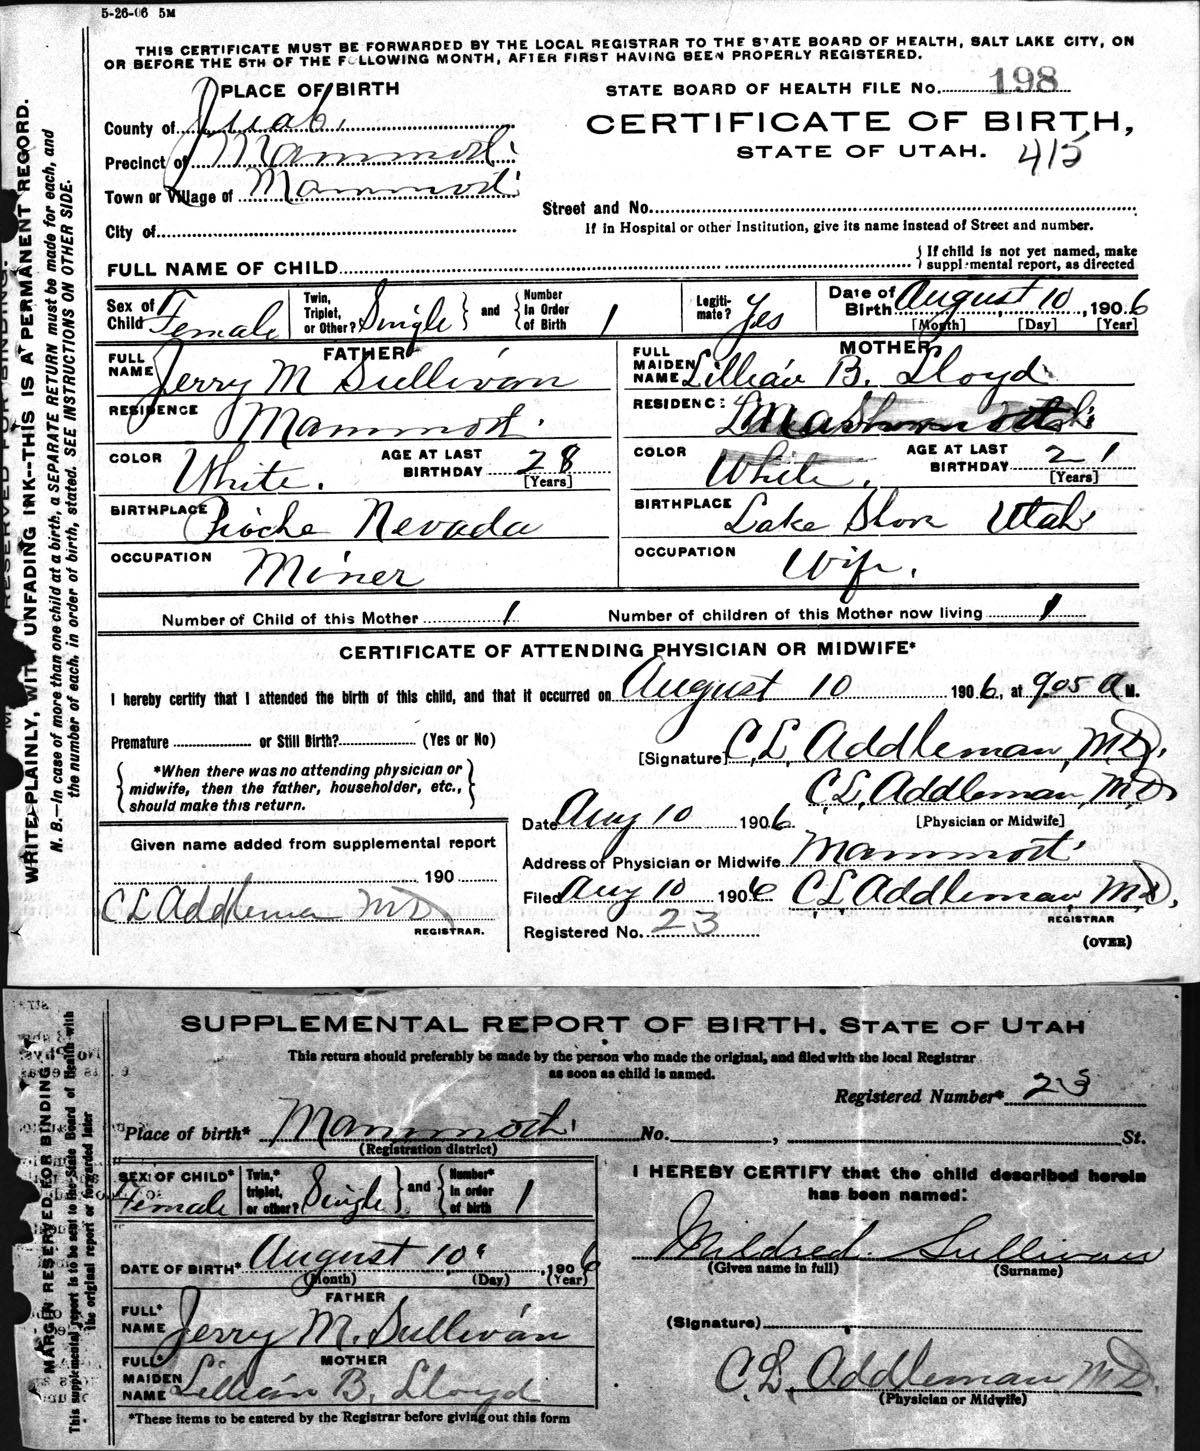 5-26-06 5M
THIS CERTIFICATE MUST BE FORWARDED BY THE LOCAL REGISTRAR TO THE STATE BOARD OF HEALTH, SALT LAKE CITY, ON
OR BEFORE THE 5TH OF THE FOLLOWING MONTH, AFTER FIRST HAVING BEEN PROPERLY REGISTERED.
PLACE OF BIRTH
STATE BOARD OF HEALTH FILE No. 198
County of Juab.
CERTIFICATE OF BIRTH,
Precinct of Mammoth
STATE OF UTAH. 415
Town or Village of Mammoth
Street and No.
City of
If in Hospital or other Institution, give its name instead of Street and number.
FULL NAME OF CHILD
{ If child is not yet named, make
supplemental report, as directed
Sex of Child Female
Twin, Triplet, or Other? Single } and { Number In Order of Birth 1
Legitimate? Yes
Date of Birth August 10, 1906
[Month] [Day] [Year]
FATHER
FULL NAME Jerry M Sullivan
RESIDENCE Mammoth.
COLOR White.
AGE AT LAST BIRTHDAY 28 [Years]
BIRTHPLACE Pioche Nevada
OCCUPATION Miner
MOTHER
FULL MAIDEN NAME Lillian B. Lloyd
RESIDENCE:
COLOR White.
AGE AT LAST BIRTHDAY 21 [Years]
BIRTHPLACE Lake Shore Utah
OCCUPATION Wife.
Number of Child of this Mother 1
Number of children of this Mother now living 1
CERTIFICATE OF ATTENDING PHYSICIAN OR MIDWIFE*
I hereby certify that I attended the birth of this child, and that it occurred on August 10 1906, at 9.05 a M.
Premature or Still Birth? (Yes or No)
[Signature] C. L. Addleman, M.D.
{ *When there was no attending physician or
midwife, then the father, householder, etc.,
should make this return. }
C. L. Addleman, M.D.
[Physician or Midwife]
Date Aug 10 1906.
Address of Physician or Midwife Mammoth
Filed Aug 10 1906 C. L. Addleman, M.D.
REGISTRAR
Registered No. 23
(OVER)
Given name added from supplemental report
190
C L Addleman MD
REGISTRAR.
WRITE PLAINLY, WITH UNFADING INK--THIS IS A PERMANENT RECORD.
N. B.—In case of more than one child at a birth, a SEPARATE RETURN must be made for each, and
the number of each, in order of birth, stated. SEE INSTRUCTIONS ON OTHER SIDE.
SUPPLEMENTAL REPORT OF BIRTH, STATE OF UTAH
This return should preferably be made by the person who made the original, and filed with the local Registrar
as soon as child is named.
Registered Number* 23
Place of birth* Mammoth No. , St.
(Registration district)
SEX OF CHILD* Female
Twin,* triplet, or other? Single } and { Number* In order of birth 1
DATE OF BIRTH* August 10, 1906
(Month) (Day) (Year)
FATHER
FULL* NAME Jerry M. Sullivan
MOTHER
FULL* MAIDEN NAME Lillian B. Lloyd
*These items to be entered by the Registrar before giving out this form
I HEREBY CERTIFY that the child described herein
has been named:
Mildred Sullivan
(Given name in full) (Surname)
(Signature)
C. L. Addleman M.D.
(Physician or Midwife)
MARGIN RESERVED FOR BINDING
This supplemental report is to be sent to the State Board of Health with
the original report or forwarded later